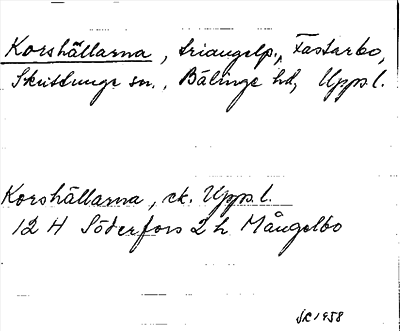 Korshällarna, triangelp., Fastarbo,
Skuttunge sn., Bälinge hd, Upps. l.
Korshällarna, ek. Upps. l.
12 H Söderfors 2 h Mångelbo
SR 1958